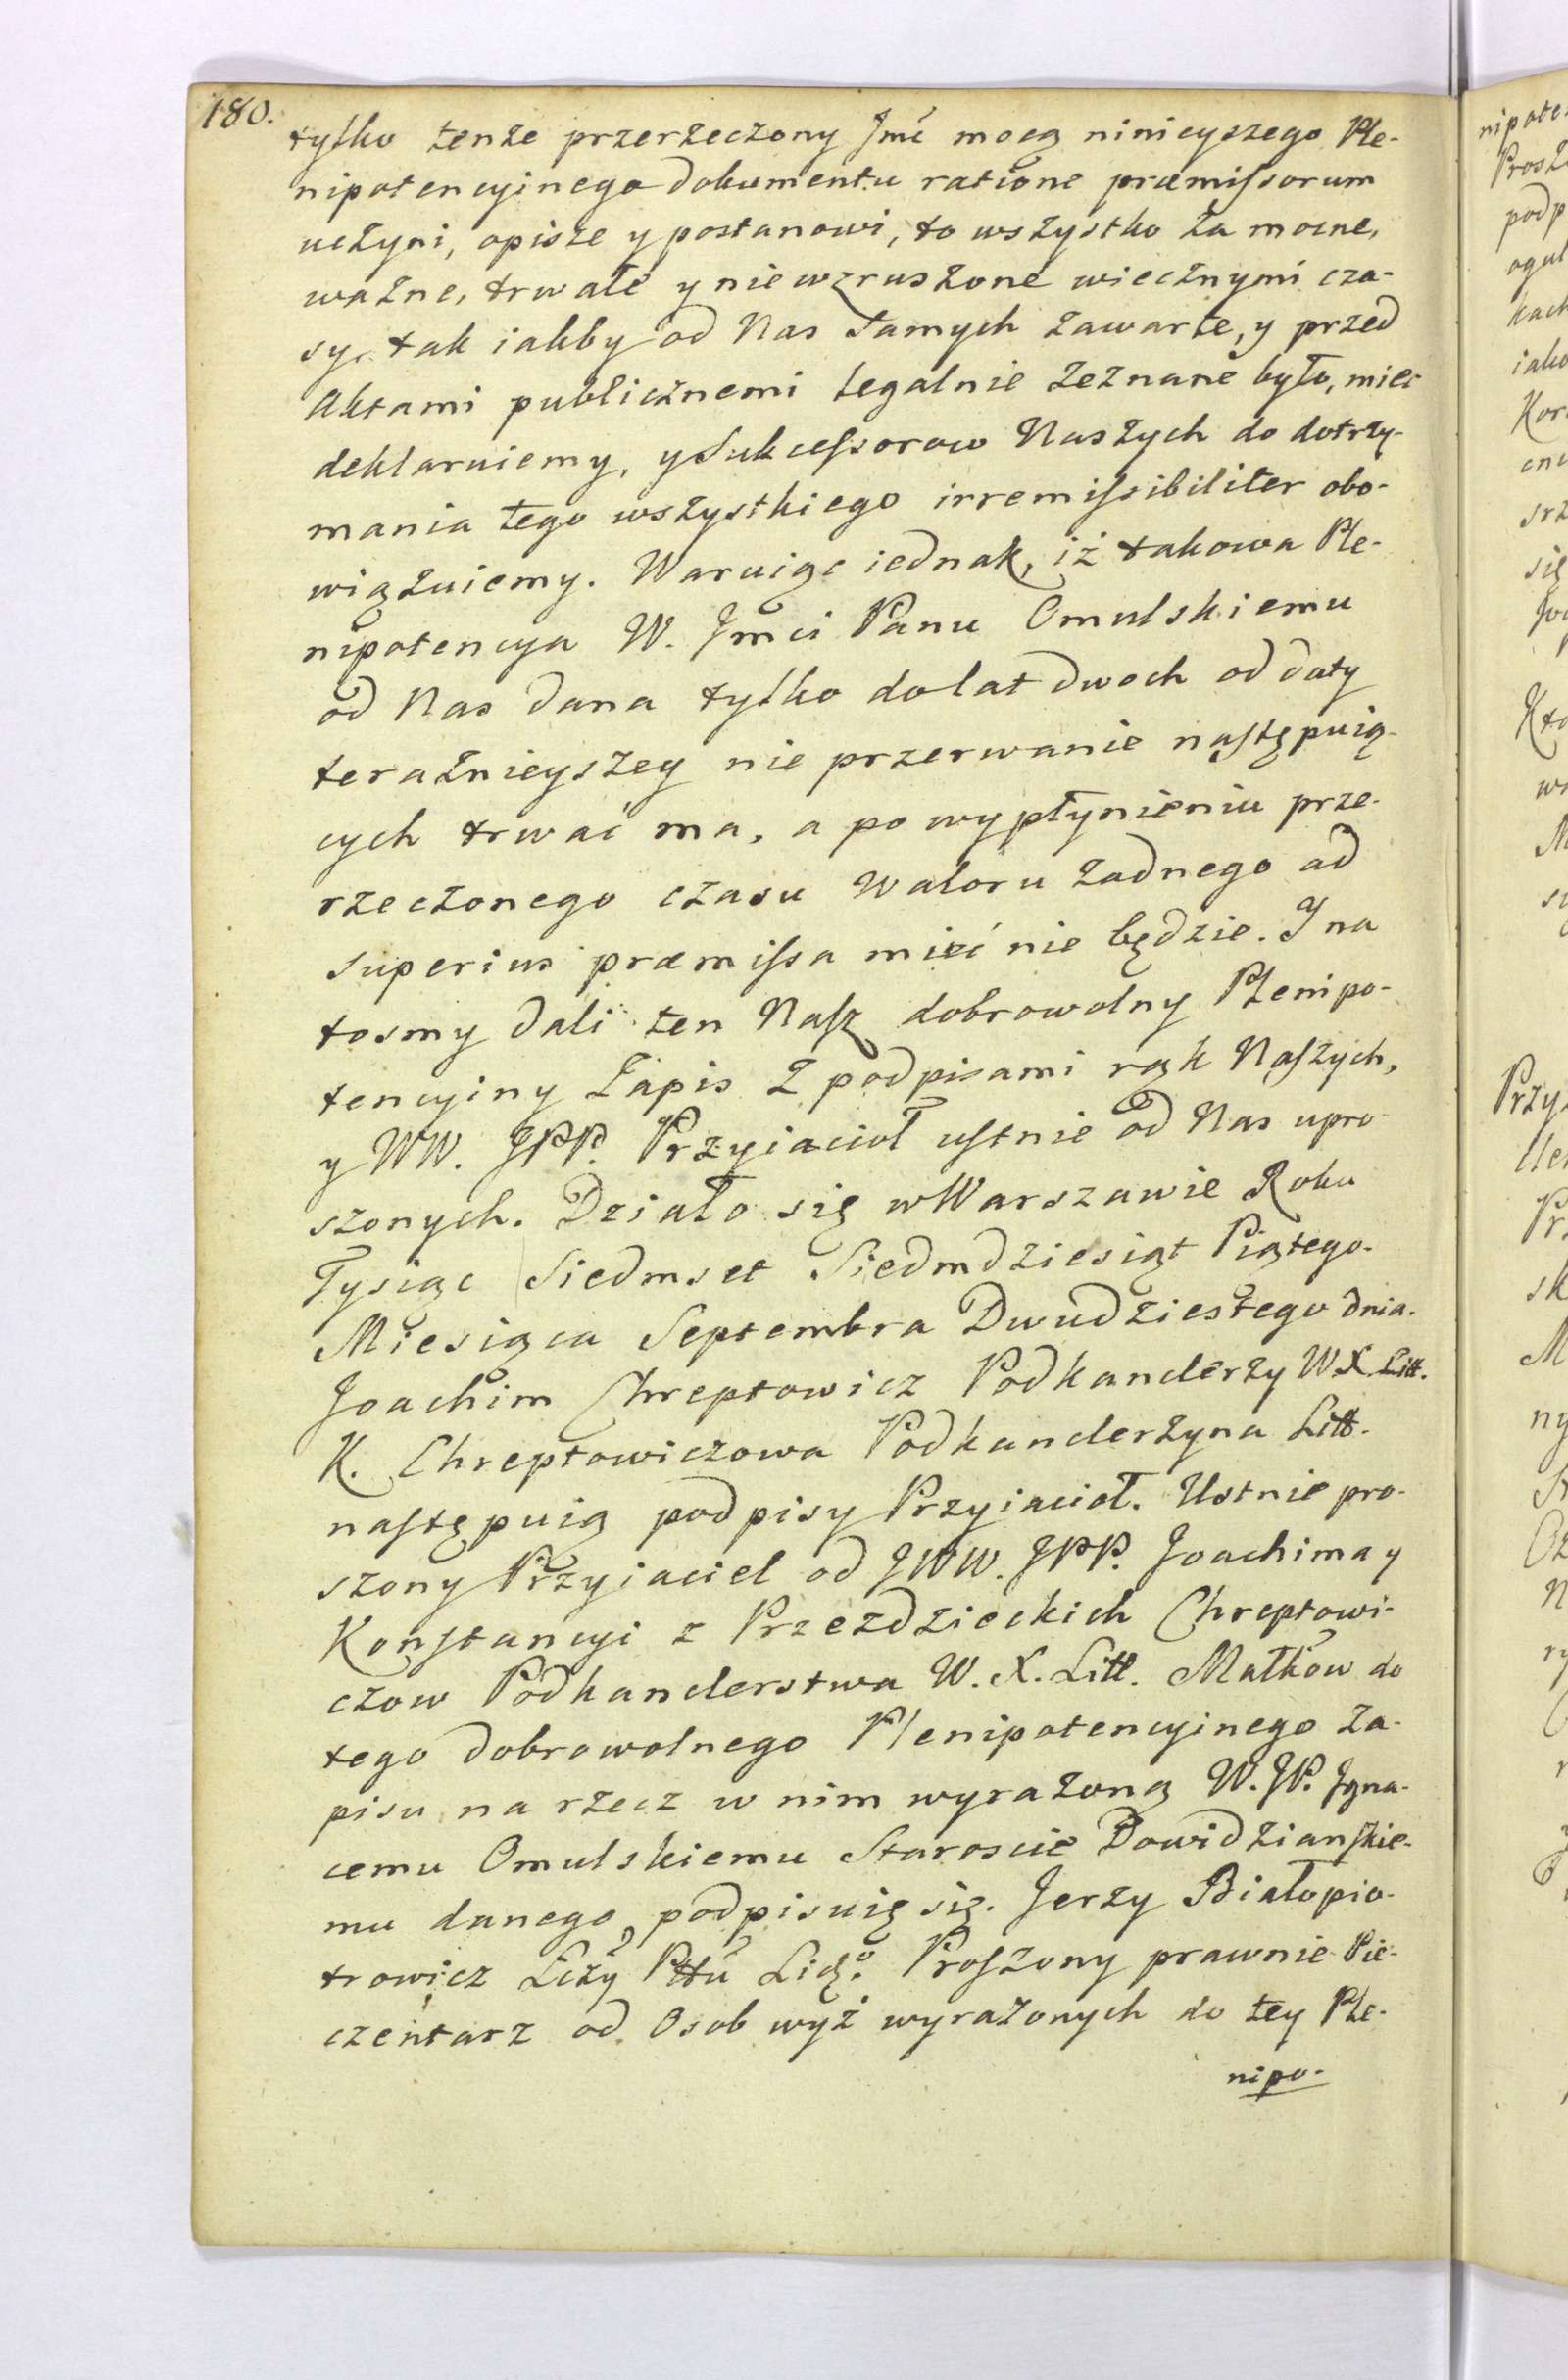 180.
tylko tenże przerzeczony Jmć mocą ninieyszego Ple-
nipotencyinego dokumentu ratione præmissorum
uczyni, opisze y postanowi, to wszystko za mocne,
ważne, trwałe y niewzruszone wiecznymi cza-
sy, tak iakby od Nas samych zawarte, y przed
Aktami publicznemi legalnie zeznane było, mieć
deklaruiemy, y Sukcessorow Naszych do dotrzy-
mania tego wszystkiego irremissibiliter obo-
wiązuiemy. Waruiąc iednak, iż takowa Ple-
nipotencya W. Jmci Panu Omulskiemu
od Nas dana tylko do lat dwoch od daty
teraznieyszey nie przerwanie następuią-
cych trwać ma, a po wypłynieniu prze-
rzeczonego czasu waloru żadnego ad
superius præmissa mieć nie będzie. I na
tosmy dali ten Nasz dobrowolny Plenipo-
tencyiny Zapis z podpisami rąk Naszych,
y WW. JPP. Przyiacioł ustnie od Nas upro-
szonych. Działo się w Warszawie Roku
Tysiąc Siedmset Siedmdziesiąt Piątego
Miesiąca Septembra Dwudziestego dnia.
Joachim Chreptowicz Podkanclerzy W.X. Litt.
K. Chreptowiczowa Podkanclerzyna Litt.
następuią podpisy Przyiacioł. Ustnie pro-
szony Przyiaciel od JWW. JPP. Joachima y
Konstancyi z Przezdzieckich Chreptowi-
czow Podkanclerstwa W. X. Litt. Małkow do
tego dobrowolnego Plenipotencyinego Za-
pisu na rzecz w nim wyrażoną W. JP. Igna-
cemu Omulskiemu Staroscie Dowidzianskie-
mu danego podpisuię się. Jerzy Białopio-
trowicz Sczy Pttu Lidzº. Proszony prawnie Pie-
czentarz od Osob wyż wyrażonych do tey Ple-
nipo-